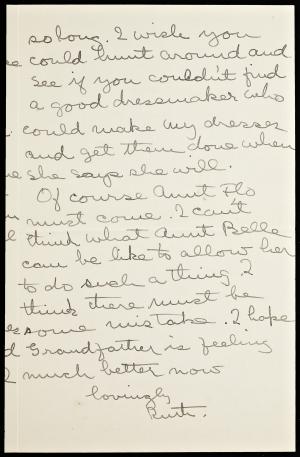 so long. I wish you
could hunt around and
see if you couldn't find
a good dressmaker who
could make my dresses
and get them done when
she says she will.
Of course Aunt Flo
must come. I can't
think what Aunt Belle
can be like to allow her
to do such a thing. I
think there must be
some mistake. I hope
Grandfather is feeling
much better now
lovingly
Ruth.